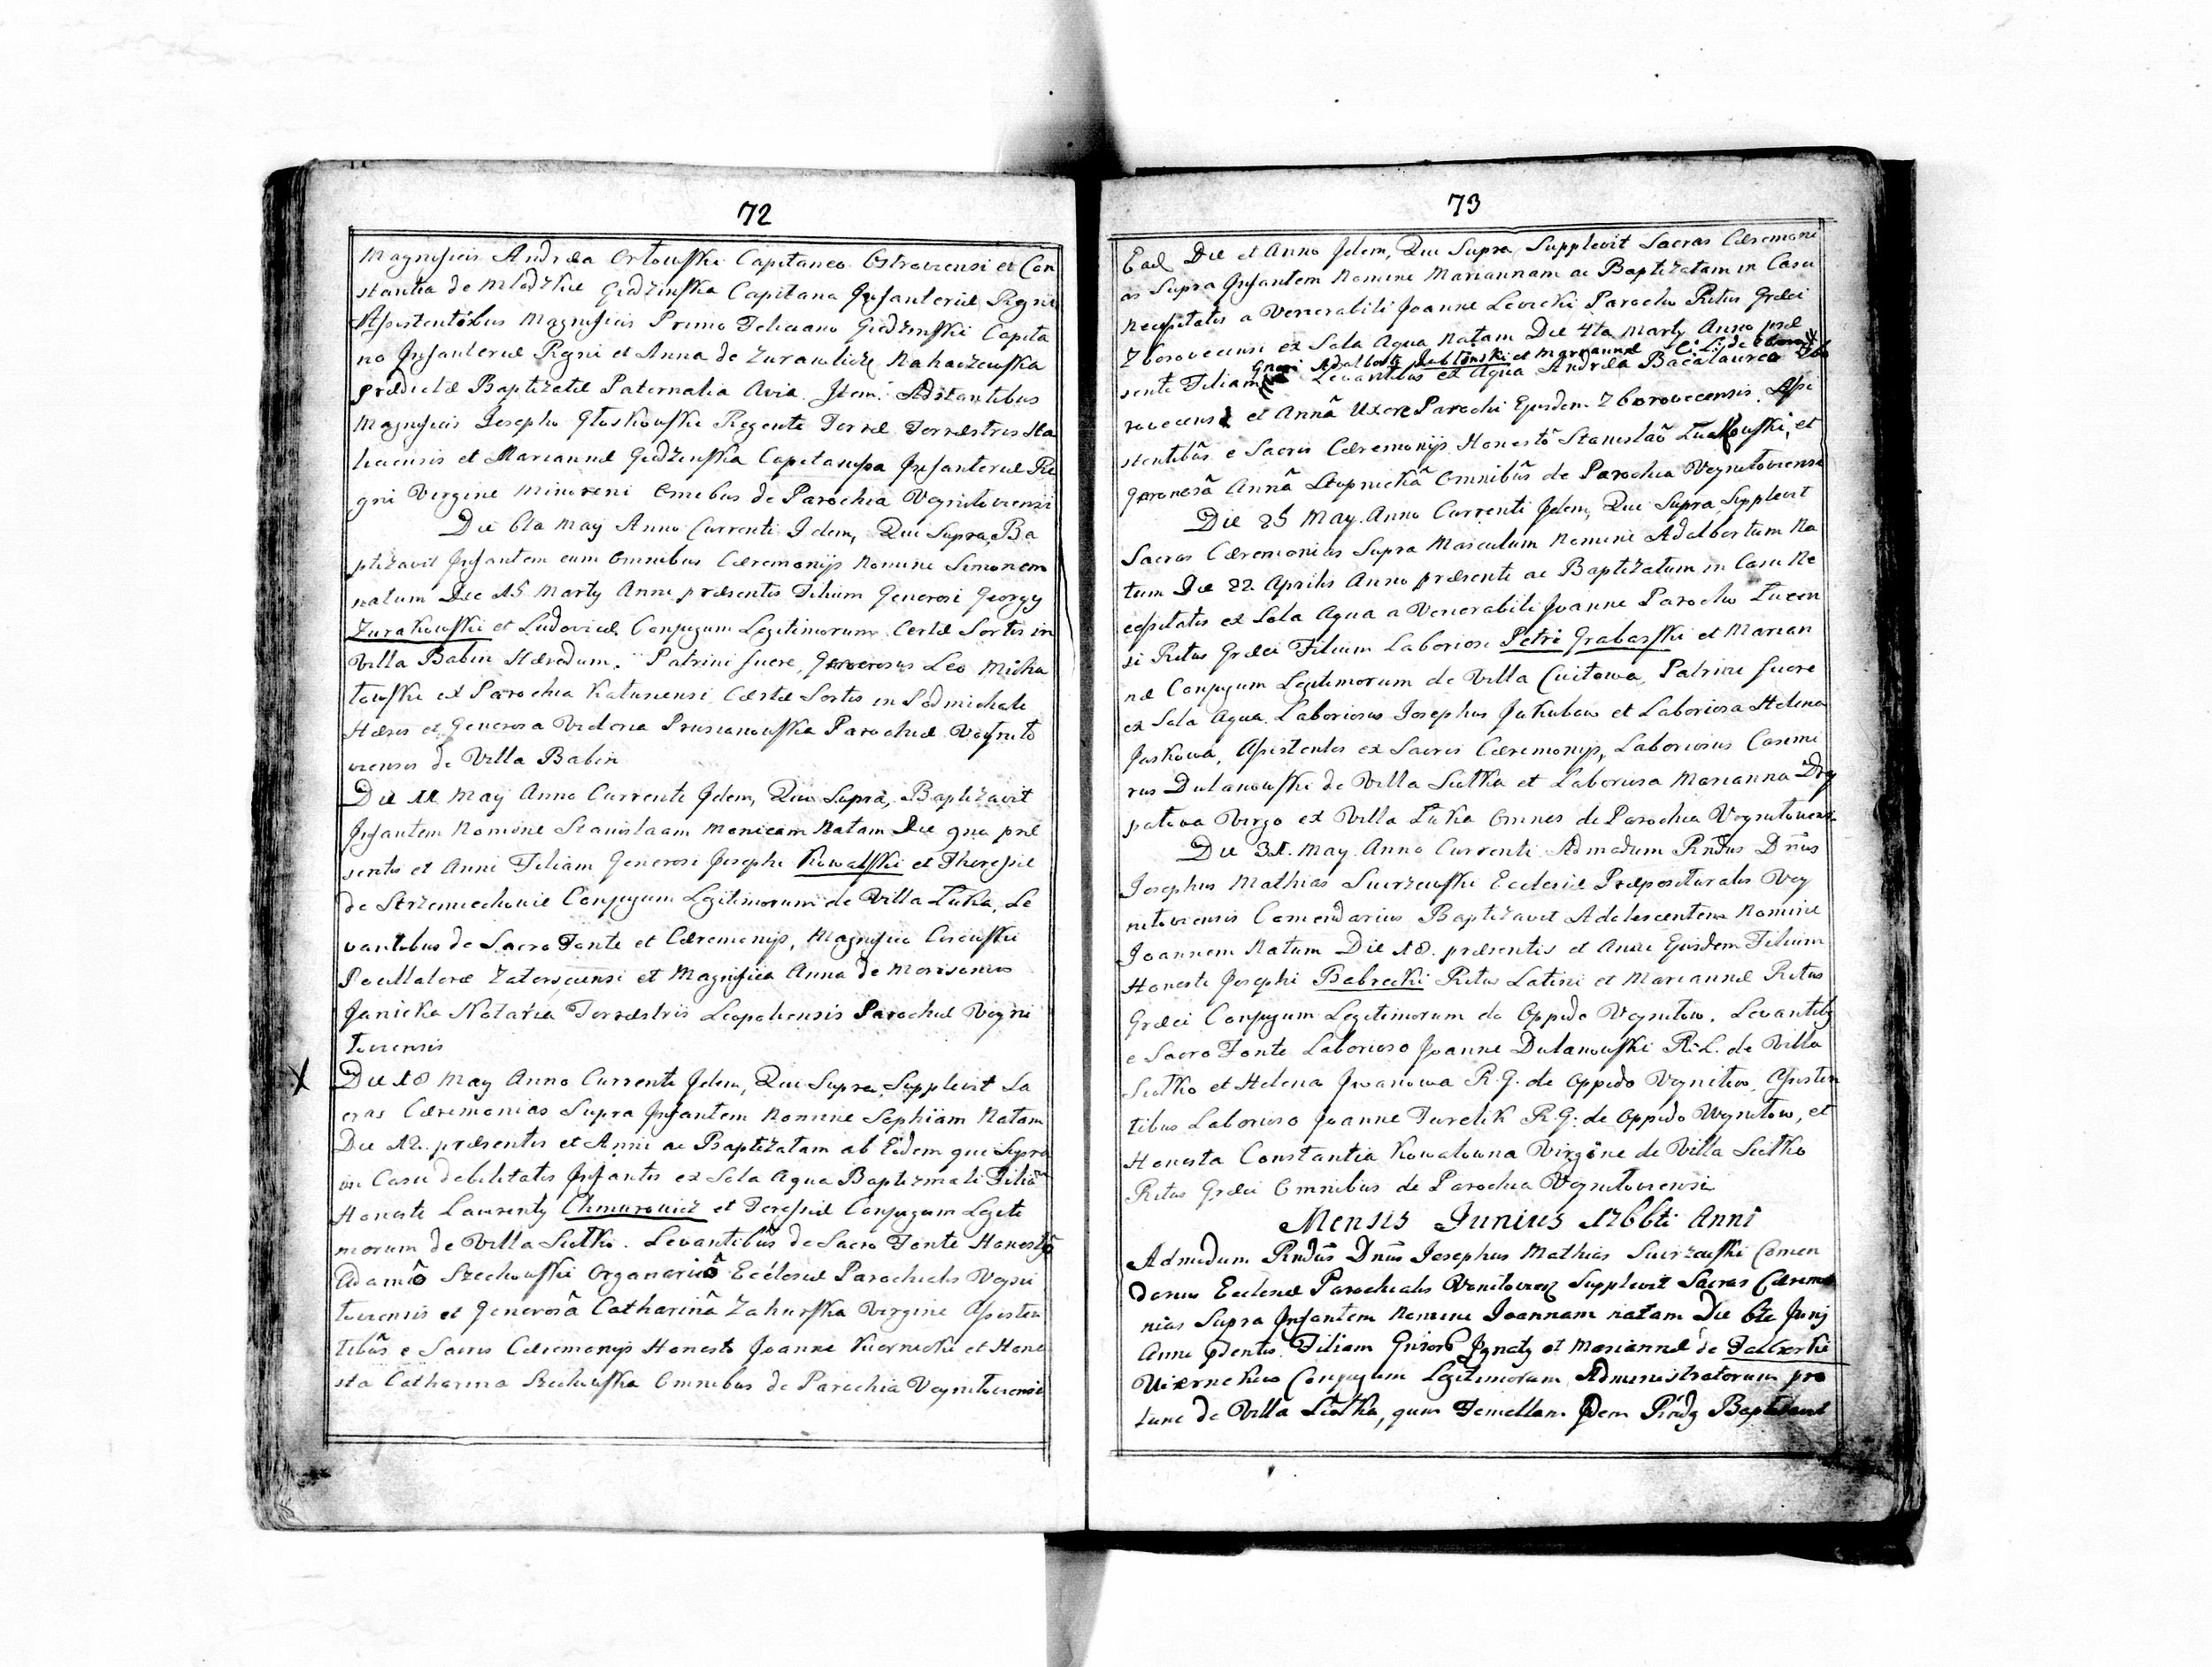 72
Magnificis Andrea Orłowski Capitaneo Ostroviensi et Con
stantia de Młodzkie Gudzinska Capitana Infanteriæ Regni
Assistentibus Magnificis Primo Feliciano Gudzinski Capita
no Infanteriæ Regni et Anna de Zurawlicze Nahaczewska
prædictæ Baptizatæ Paternalia Avia. Item. Adstantibus
Magnificis Josepho Głuskowski Regente Terræ Terrestris Ha
liciensis et Mariannæ Gudzinska Capitanissa Infanteriæ Re
gni Virgine Minoreni Omnibus de Parochia Voynitoviensi
Die 6ta May Anno Currenti Idem, Qui Supra, Ba
ptizavit Infantem cum Omnibus Cæremonijs Nomine Simonem
natum Die 15 Marty Anni præsentis Filium Generosi Georgy
Zurakowski et Ludovicæ Conjugum Legitimorum Certæ Sortis in
Villa Babin Hæredum. Patrini fuere, Generosus Leo Micha
łowski ex Parochia Katusiensi Certæ Sortis in Podmichale
Hæres et Generosa Victoria Prusianowska Parochiæ Voynito
viensis de Villa Babin
Die 11 May Anno Currenti Idem, Qui Supra, Baptizavit
Infantem Nomine Stanislaam Monicam Natam Die 9na præ
sentis et Anni Filiam Generosi Josephi Kowalski et Theresiæ
de Strzemiechowie Conjugum Legitimorum de Villa Łuka, Le
vantibus de Sacro Fonte et Cæremonijs, Magnifico
Pocillatore Zatorscensi et Magnifica Anna de
Janicka Notaria Terrestris Leopoliensis Parochiæ Voyni
toviensis
X Die 18 May Anno Currenti Idem, Qui Supra, Supplevit Sa
cras Cæremonias Supra Infantem Nomine Sophiam Natam
Die 12. præsentis et Anni ac Baptizatam ab Eodem qui Supra
in Casu debilitatis Infantis ex Sola Aqua Baptizmali Filiã
Honesti Laurenty Chmurowicz et Teressiæ Conjugum Legiti
morum de Villa Siołko. Levantibũs de Sacro Fonte Honestõ
Adamõ Szechowski Organariõ Ecclesiæ Parochialis Voyni
toviensis et Generosã Catharinã Zahurska Virgine Assisten
tibũs e Sacris Cæremonijs Honesto Joanne Kiernicki et Hone
sta Catharina Szechowska Omnibus de Parochia Voynitoviensi
73
Eadẽ Die et Anno Idem, Qui Supra, Supplevit Sacras Cæremoni
as Supra Infantem Nomine Mariannam ac Baptizatam in Casu
Necessitatis a Venerabili Joanne Levicki Parocho Ritus Græci
Zborovecensi ex Sola Aqua Natam Die 4ta Marty Anno præ
Gnosi Adalberti Jabłonski et Mariannæ C: L: de
sente Filiam Levantibus ex Aqua Andræa Bacalaureo Zbo
rovecensi et Annã Uxore Parochi Ejusdem Zborovecensis. Assi
stentibũs e Sacris Cæremonijs Honestõ Stanislaõ et
Generosã Annã Stopnickã Omnibũs de Parochia Voynitoviensi
Die 25 May. Anno Currenti Idem, Qui Supra, Supplevit
Sacras Cæremonias Supra Masculum Nomine Adalbertum Na
tum Die 22 Aprilis Anno præsente ac Baptizatum in Casu Ne
cessitatis ex Sola Aqua a Venerabili Joanne Parocho Łucen
si Ritus Græci Filium Laboriosi Petri Grabarski et Marian
næ Conjugum Legitimorum de Villa Cwitowa, Patrini fuere
ex Sola Aqua. Laboriosus Josephus Jakubow et Laboriosa Helena
Jaskowa, Assistentes ex Sacris Cæremonijs, Laboriosus Casimi
rus Dulanowski de Villa Siołka et Laboriosa Marianna Dry
patiwa Virgo ex Villa Łuka Omnes de Parochia Voynitoviensi
Die 31. May. Anno Currenti Admodum Rndus Dñus
Josephus Mathias Swirzewski Ecclesiæ Præpositurалis Voy
nitoviensis Comendarius Baptizavit Adolescentem Nomine
Joannem Natum Die 18. præsentis et Anni Ejusdem Filium
Honesti Josephi Bobrecki Ritus Latini et Mariannæ Ritus
Græci Conjugum Legitimorum de Oppido Voynitow. Levantibq
e Sacro Fonte Laborioso Joanne Dulanowski R: L. de Villa
Siołko et Helena Jwanowa R. G. de Oppido Voynitow, Assisten
tibus Laborioso Joanne Turelik R. G: de Oppido Woynitow, et
Honesta Constantia Kowalowna Virgine de Villa Siołko
Ritus Græci Omnibus de Parochia Voynitoviensi
Mensis Junius 1766ti Anni
Admodum Rndũs Dnũs Josephus Mathias Swirzewski Comen
darius Ecclesiæ Parochialis Supplevit Sacras Cæremo
nias Supra Infantem Nomine Joannam natam Die 6ta Junij
Anni pdentis. Filiam Gnisorũ Ignaty et Mariannæ de
Conjugum Legitimorum Administratorum pro
tunc de Villa Siołka, quam Femellam Idem Rndq Baptizavit